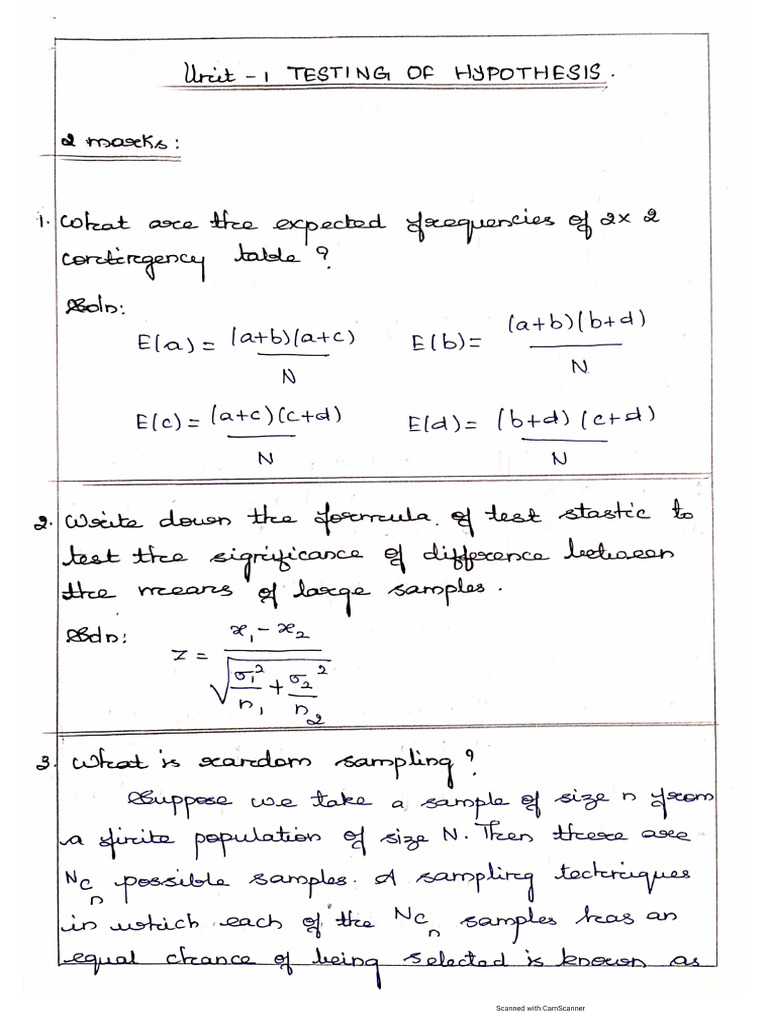 Unit - 1 TESTING OF HYPOTHESIS.
2 marks:
1. What are the expected frequencies of 2x2
contingency table?
Soln:
E(a) = (a+b)(a+c)/N E(b) = (a+b)(b+d)/N
E(c) = (a+c)(c+d)/N E(d) = (b+d)(c+d)/N
2. Write down the formula of test stastic to
test the significance of difference between
the means of large samples.
Soln:
z = x₁ - x₂ / √(σ₁²/n₁ + σ₂²/n₂)
3. What is random sampling?
Suppose we take a sample of size n from
a finite population of size N. Then there are
NCₙ possible samples. A sampling techniques
in which each of the NCₙ samples has an
equal chance of being selected is known as
Scanned with CamScanner